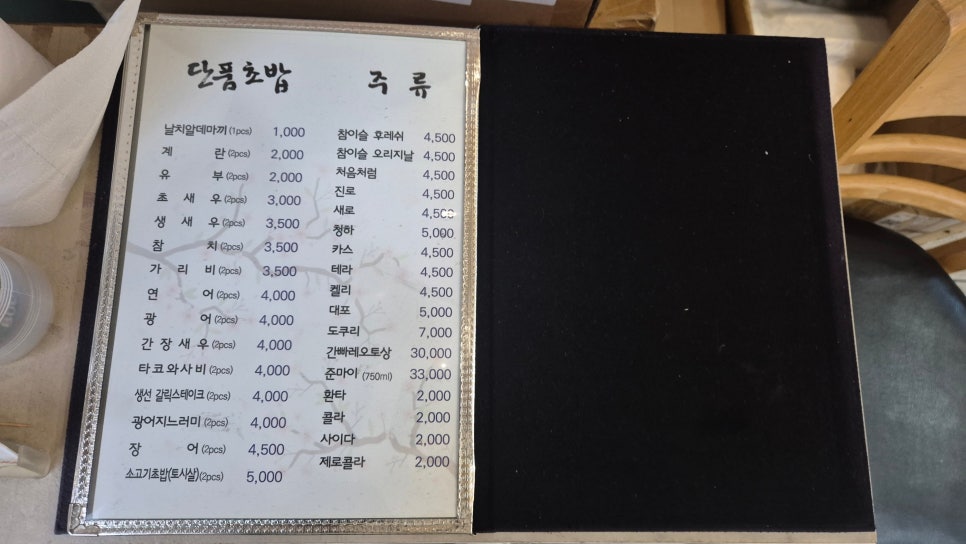 단품초밥
날치알데마끼 (1pcs) 1,000
계 란 (2pcs) 2,000
유 부 (2pcs) 2,000
초 새 우 (2pcs) 3,000
생 새 우 (2pcs) 3,500
참 치 (2pcs) 3,500
가 리 비 (2pcs) 3,500
연 어 (2pcs) 4,000
광 어 (2pcs) 4,000
간 장 새 우 (2pcs) 4,000
타코와사비 (2pcs) 4,000
생선 갈릭스테이크 (2pcs) 4,000
광어지느러미 (2pcs) 4,000
장 어 (2pcs) 4,500
소고기초밥(토시살)(2pcs) 5,000
주 류
참이슬 후레쉬 4,500
참이슬 오리지날 4,500
처음처럼 4,500
진로 4,500
새로 4,500
청하 5,000
카스 4,500
테라 4,500
켈리 4,500
대포 5,000
도쿠리 7,000
간빠레오토상 30,000
준마이 (750ml) 33,000
환타 2,000
콜라 2,000
사이다 2,000
제로콜라 2,000